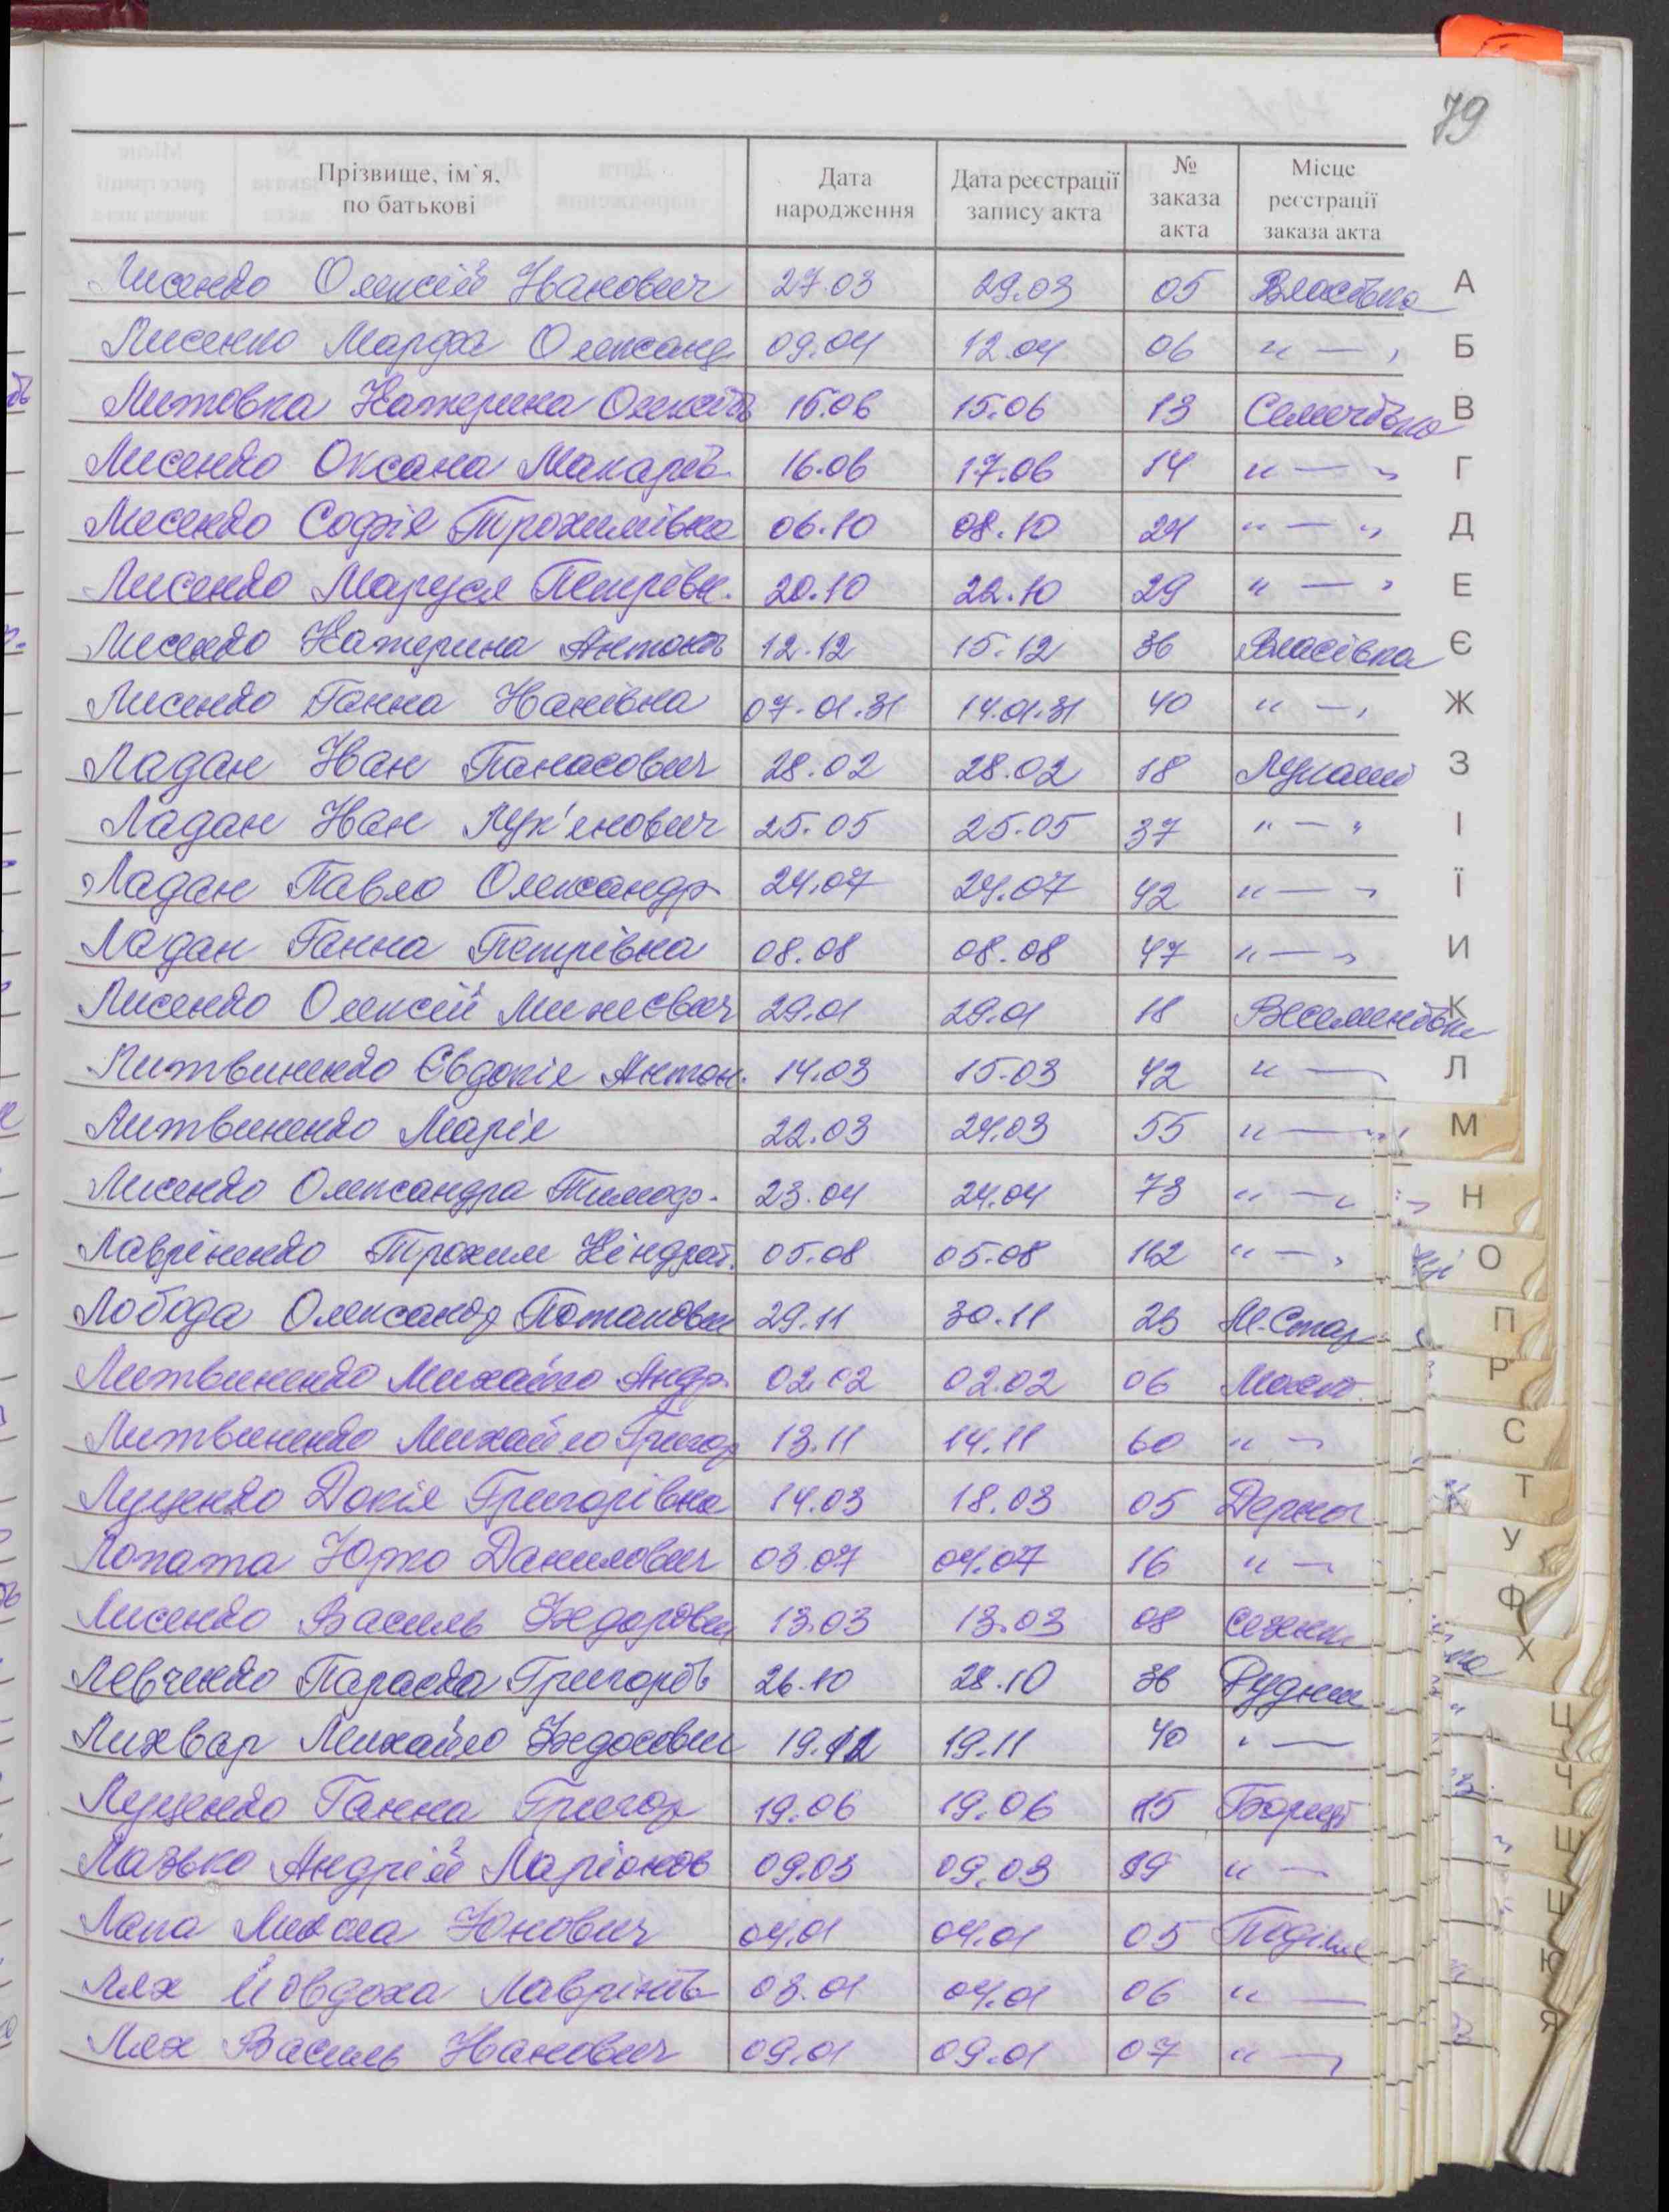 79
Прізвище, ім`я, по батькові Дата народження Дата реєстрації запису акта № заказа акта Місце реєстрації заказа акта
Лисенко Олексій Іванович 27.03 29.03 05 Власівка А
Лисенко Марфа Олександ 09.04 12.04 06 " — " Б
Литовка Катерина Олексіїв 15.06 15.06 13 Семенівка В
Лисенко Оксана Макарів. 16.06 17.06 14 " — " Г
Лисенко Софія Трохимівна 06.10 08.10 24 " — " Д
Лисенко Маруся Петрівн. 20.10 22.10 29 " — " Е
Лисенко Катерина Антонів 12.12 15.12 36 Власівка Є
Лисенко Ганна Іванівна 07.01.31 14.01.31 40 " — " Ж
Ладан Іван Панасович 28.02 28.02 18 Лукаші З
Ладан Іван Лук'янович 25.05 25.05 37 " — " І
Ладан Павло Олександр. 24.07 24.07 42 " — " Ї
Ладан Ганна Петрівна 08.08 08.08 47 " — " И
Лисенко Олексій 29.01 29.01 18 К
Литвиненко Євдокія Антон. 14.03 15.03 42 " — Л
Литвиненко Марія 22.03 24.03 55 " — " М
Лисенко Олександра Тимоф. 23.04 24.04 73 " — " Н
Лавріненко Трохим Кіндрат. 05.08 05.08 162 " — " О
Лобода Олександр Потапович 29.11 30.11 23 М.Стар П
Литвиненко Михайло Андр. 02.02 02.02 06 Р
Литвиненко Михайло Григор 13.11 14.11 60 " — С
Луценко Докія Григорівна 14.03 18.03 05 Т
Лопата Юрко Данилович 03.07 04.07 16 " — У
Лисенко Василь Федорович 13.03 13.03 08 Ф
Левченко Параска Григорів 26.10 28.10 36 Рудниц Х
Лихвар Михайло Федосович 19.12 19.11 40 " — Ц
Луценко Ганна Григор 19.06 19.06 15 Ч
Лазько Андрій Ларіонов 09.03 09.03 89 " — Ш
Лапа Микола Юнович 04.01 04.01 05 Поділля Щ
Лях Йовдоха Лаврінтів 03.01 04.01 06 " — Ю
Лях Василь Іванович 09.01 09.01 07 " — Я